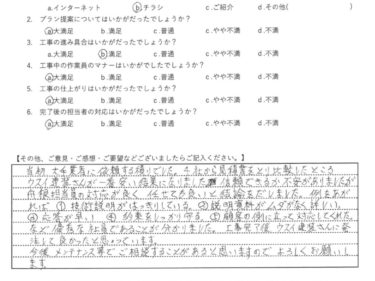 a.インターネット ⓑチラシ c.ご紹介 d.その他( )
2. プラン提案についてはいかがだったでしょうか？
ⓐ大満足 b.満足 c.普通 c.やや不満 d.不満
3. 工事の進み具合はいかがだったでしょうか？
a.大満足 ⓑ満足 c.普通 c.やや不満 d.不満
4. 工事中の作業員のマナーがいかがでしたでしょうか？
ⓐ大満足 b.満足 c.普通 c.やや不満 d.不満
5. 工事の仕上がりはいかがだったでしょうか？
ⓐ大満足 b.満足 c.普通 c.やや不満 d.不満
6. 完了後の担当者の対応はいかがだったでしょうか？
ⓐ大満足 b.満足 c.普通 c.やや不満 d.不満
【その他、ご意見・ご感想・ご要望などございましたらご記入ください。】
当初 大手業者に依頼する積りでした。4社から見積書をとり比較したところ
ウスイ建装さんが一番安い結果になりました 信頼できるか不安がありましたが
担当員の対応が良く 任せても良いと結論をだしました。例をあげ
れば ① 検討説明がはっきりしている。② 説明資料がムダがなく詳しい。
③ 応答が早い ④ 約束をしっかり守る ⑤ 顧客の側に立って対応してくれた。
など 優秀な社員であることが分かりました。工事完了後 ウスイ建装さんに発
注して良かったと思っています。
今後 メンテナンス等でご相談することがあると思いますので よろしくお願いし
ます